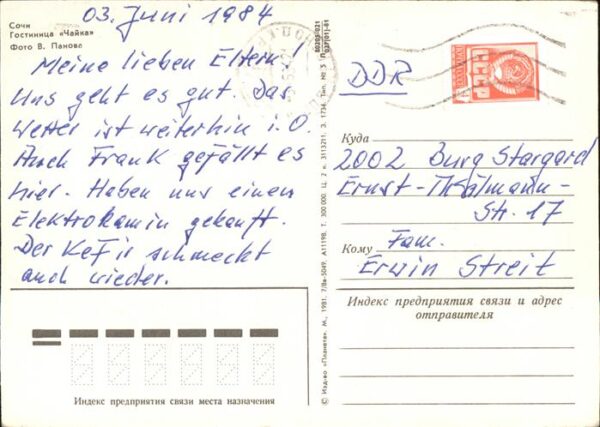 03. Juni 1984
Сочи
Гостиница «Чайка»
Фото В. Панова
Meine lieben Eltern!
Uns geht es gut. Das
Wetter ist weiterhin i. O.
Auch Frank gefällt es
hier. Haben uns einen
Elektrokamin gekauft.
Der Kefir schmeckt
auch wieder.
Индекс предприятия связи места назначения
© Изд-во «Планета». М., 1981. 7/8а-5049. А11198. Т. 300 000. Ц. 2 к. 3113211. З. 1734. Тип. № 5
СССР
DDR
Куда
2002 Burg Stargard
Ernst-Thälmann-
Str. 17
Кому
Fam.
Erwin Streit
Индекс предприятия связи и адрес
отправителя